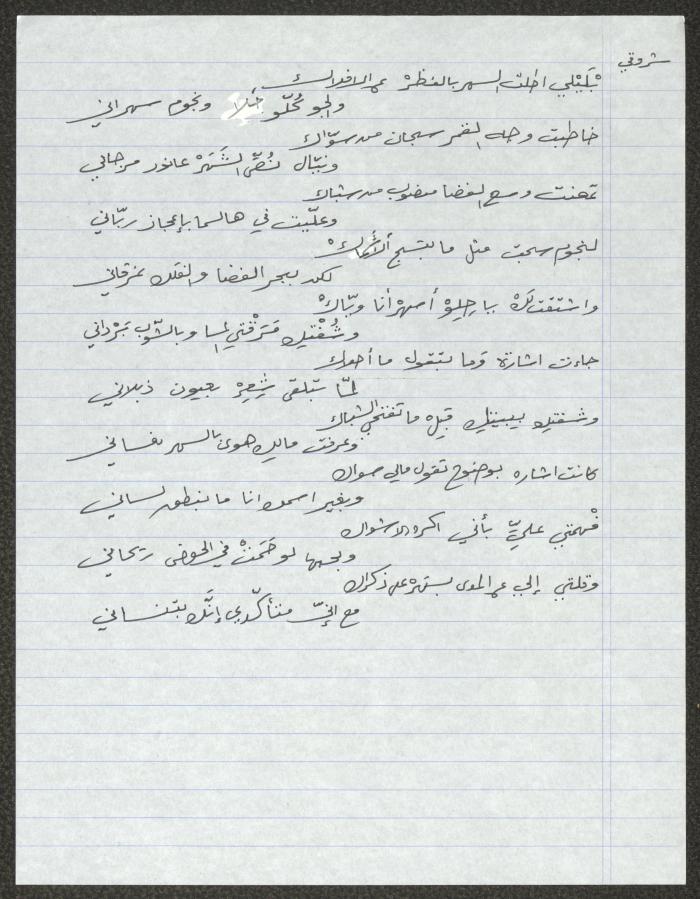 شروقي
بْلَيْلي اطلت السهر بالنظرْ عم الافلاك
والجو كُلّو حَلا ونجوم سهراني
خاطبت وجه القمر سبحان من سوّاك
ونيّال نُصّ الشَهَرْ عاخدر مرجاني
تمعنت وسع الفضا من شباك
وعلّيت في هالسما بإعجاز ربّاني
لنجوم سبحت مثل ما بتسبح الأسماك
لكن ببحر الفضا والفلك غرقاني
واشتقت لَكْ يا حِلِوْ أسهرْ أنا ويّاكْ
وشُفْتِك مَرَقْتي لمسا وبالتّوب بَرْداني
جاءت اشارة وَما بتقول ما أحلاك
لمّا بتلقي شِعِرْ بعيون ذبلاني
وشفتك ببيتك قبِل ما تفتحي الشباك
وعرفت مالك هوى بالسهر نعساني
كانت اشاره بوضوح تقول مالي سواك
وبغير اسمك انا ما بنطق لساني
فْهمتي عليّ بأني اكره الاشواك
وبحبها لو حَمَتْ في الحوض ريحاني
وقلتي إلي عم المدى بسهر على ذكراك
مع إنّي متأكّدي إنَّك بتنساني